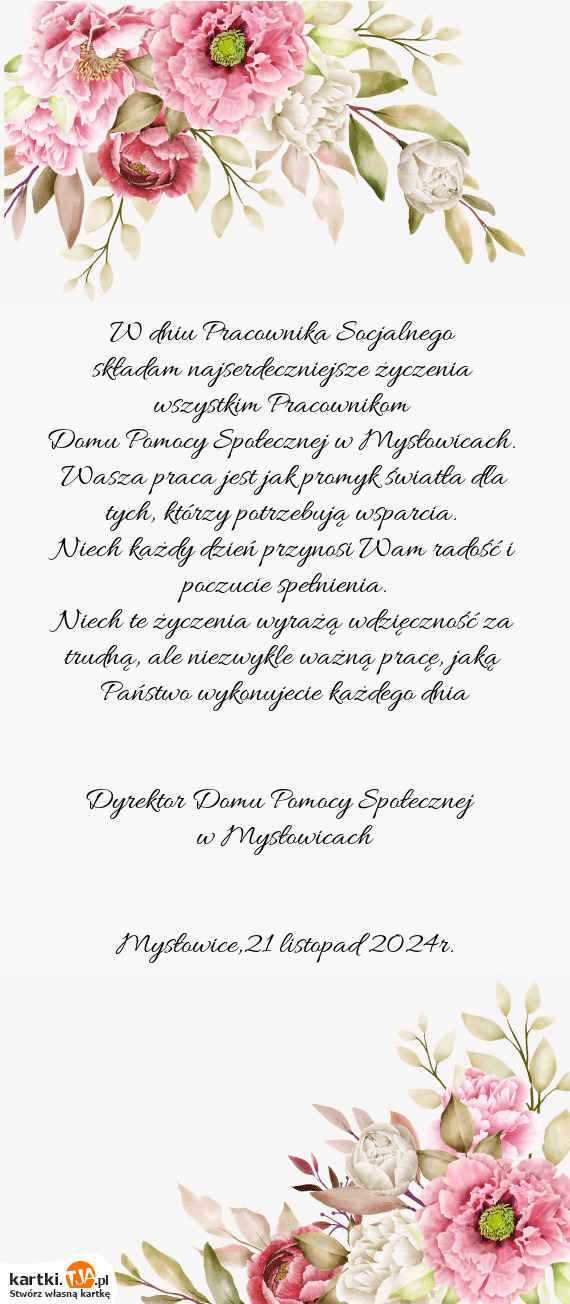 W dniu Pracownika Socjalnego
składam najserdeczniejsze życzenia
wszystkim Pracownikom
Domu Pomocy Społecznej w Mysłowicach.
Wasza praca jest jak promyk światła dla
tych, którzy potrzebują wsparcia.
Niech każdy dzień przynosi Wam radość i
poczucie spełnienia.
Niech te życzenia wyrażą wdzięczność za
trudną, ale niezwykle ważną pracę, jaką
Państwo wykonujecie każdego dnia
Dyrektor Domu Pomocy Społecznej
w Mysłowicach
Mysłowice,21 listopad 2024r.
kartki.TJA.pl
Stwórz własną kartkę